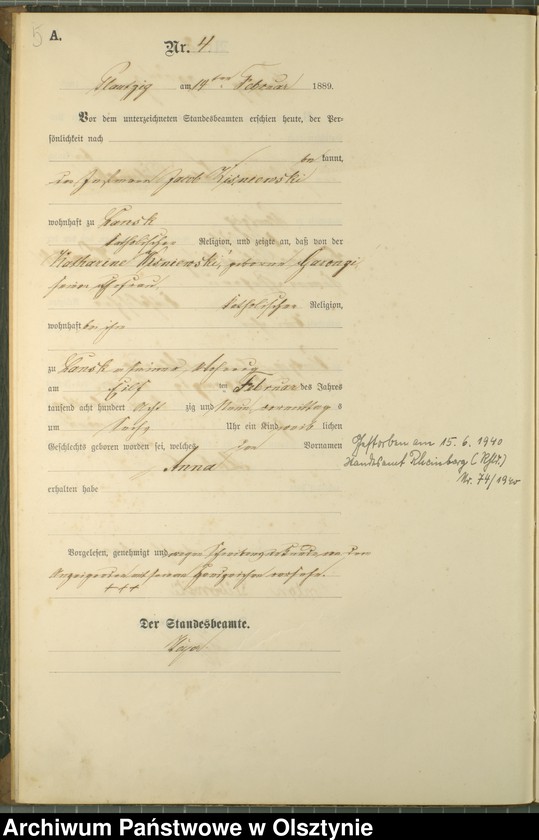 5
A.
Nr. 4.
Plautzig am 14ten Februar 1889.
Vor dem unterzeichneten Standesbeamten erschien heute, der Per-
sönlichkeit nach
be kannt,
der Instmann Jacob Wisniewski
wohnhaft zu Lansk
katholischer Religion, und zeigte an, daß von der
Katharine Wisniewski, geborene
seiner Ehefrau,
katholischer Religion,
wohnhaft bei ihm
zu Lansk in seiner Wohnung
am Eilf ten Februar des Jahres
tausend acht hundert Acht zig und Neun, vormittag s
um Sechs Uhr ein Kind weib lichen
Geschlechts geboren worden sei, welches den Vornamen
Anna
erhalten habe
Vorgelesen, genehmigt und wegen Schreibensunkunde von dem
Anzeigenden mit seinem Handzeichen versehen.
+++
Der Standesbeamte.
Gestorben am 15.6.1940
Standesamt Rheinberg (Rhld.)
Nr. 74/1940
Archiwum Państwowe w Olsztynie